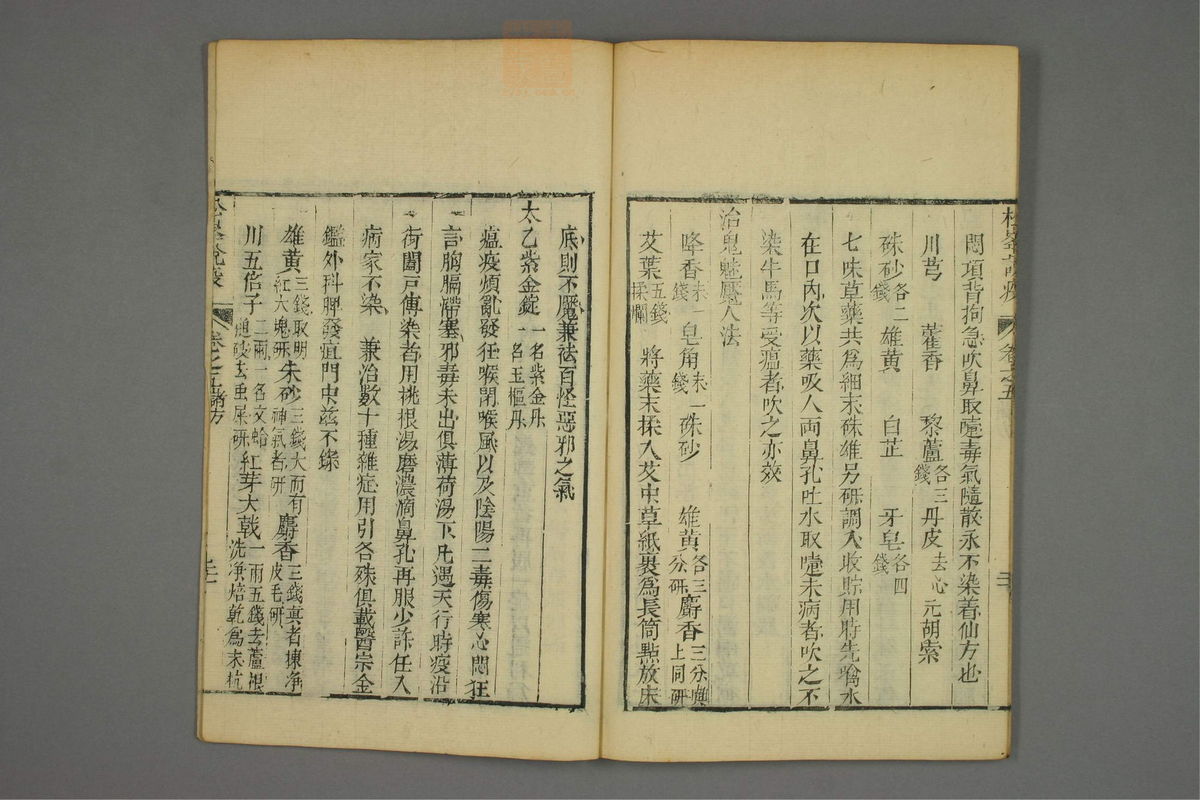 悶項背拘急吹鼻取嚏毒氣隨散永不染着仙方也
川芎　藿香　藜蘆各三錢丹皮去心元胡索
硃砂各二錢雄黃　白芷　牙皂各四錢
七味草藥共為細末硃雄另研調入收貯用時先噙水
在口內次以藥吸入両鼻孔吐水取嚏未病者吹之不
染牛馬等受瘟者吹之亦效
治鬼魅魘人法
降香末一錢皂角末一錢硃砂　雄黃各三分研麝香三分與上同研
艾葉五錢揉爛　將藥末揉入艾中草紙裹為長筒點放床
底則不魘兼祛百怪惡邪之氣
太乙紫金錠一名紫金丹一名玉樞丹
瘟疫煩亂發狂喉閉喉風以及陰陽二毒傷寒心悶狂
言胸膈滯塞邪毒未出俱薄荷湯下凡遇天行時疫沿
街闔戶傳染者用桃根湯磨濃滴鼻孔再服少許任入
病家不染　兼治數十種雜症用引各殊俱載醫宗金
鑑外科脾發疽門中茲不錄
雄黃三錢取明紅大塊研朱砂三錢大而有神氣者研麝香三錢真者揀淨皮毛研
川五倍子二兩一名文蛤搥破去虫屎研紅芽大戟一兩五錢去蘆根洗凈焙乾為末杭
卷之五諸方